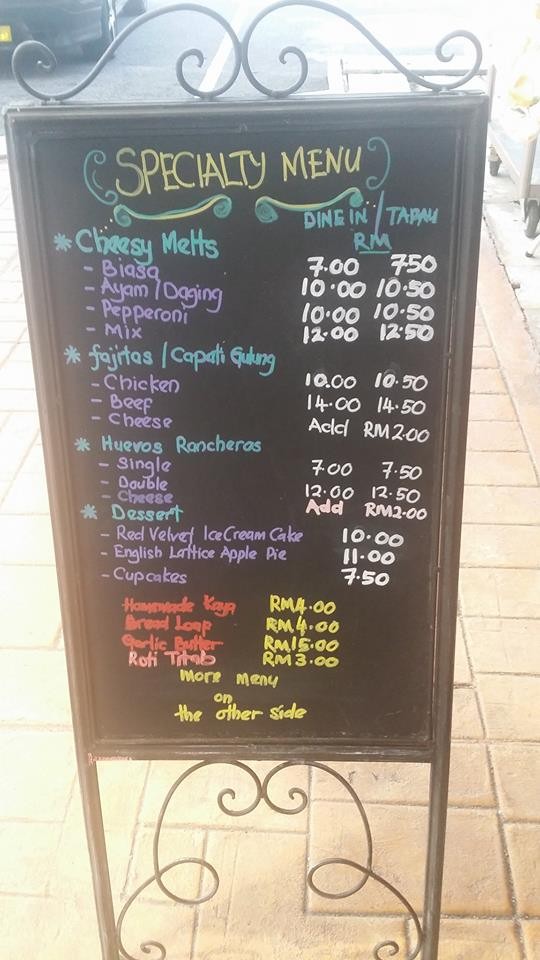 SPECIALTY MENU
DINE IN / TAPAU
RM
* Cheesy Melts
- Biasa 7.00 750
- Ayam / Daging 10.00 10.50
- Pepperoni 10.00 10.50
- Mix 12.00 12.50
* fajitas / Capati Gulung
- Chicken 10.00 10.50
- Beef 14.00 14.50
- Cheese Add RM2.00
* Huevos Rancheros
- Single 7.00 7.50
- Double 12.00 12.50
- Cheese Add RM2.00
* Dessert
- Red Velvet Ice Cream Cake 10.00
- English Lattice Apple Pie 11.00
- Cupcakes 7.50
Homemade Kaya RM4.00
Bread Loap RM4.00
Garlic Butter RM15.00
Roti Titab RM3.00
More Menu
on
the other side